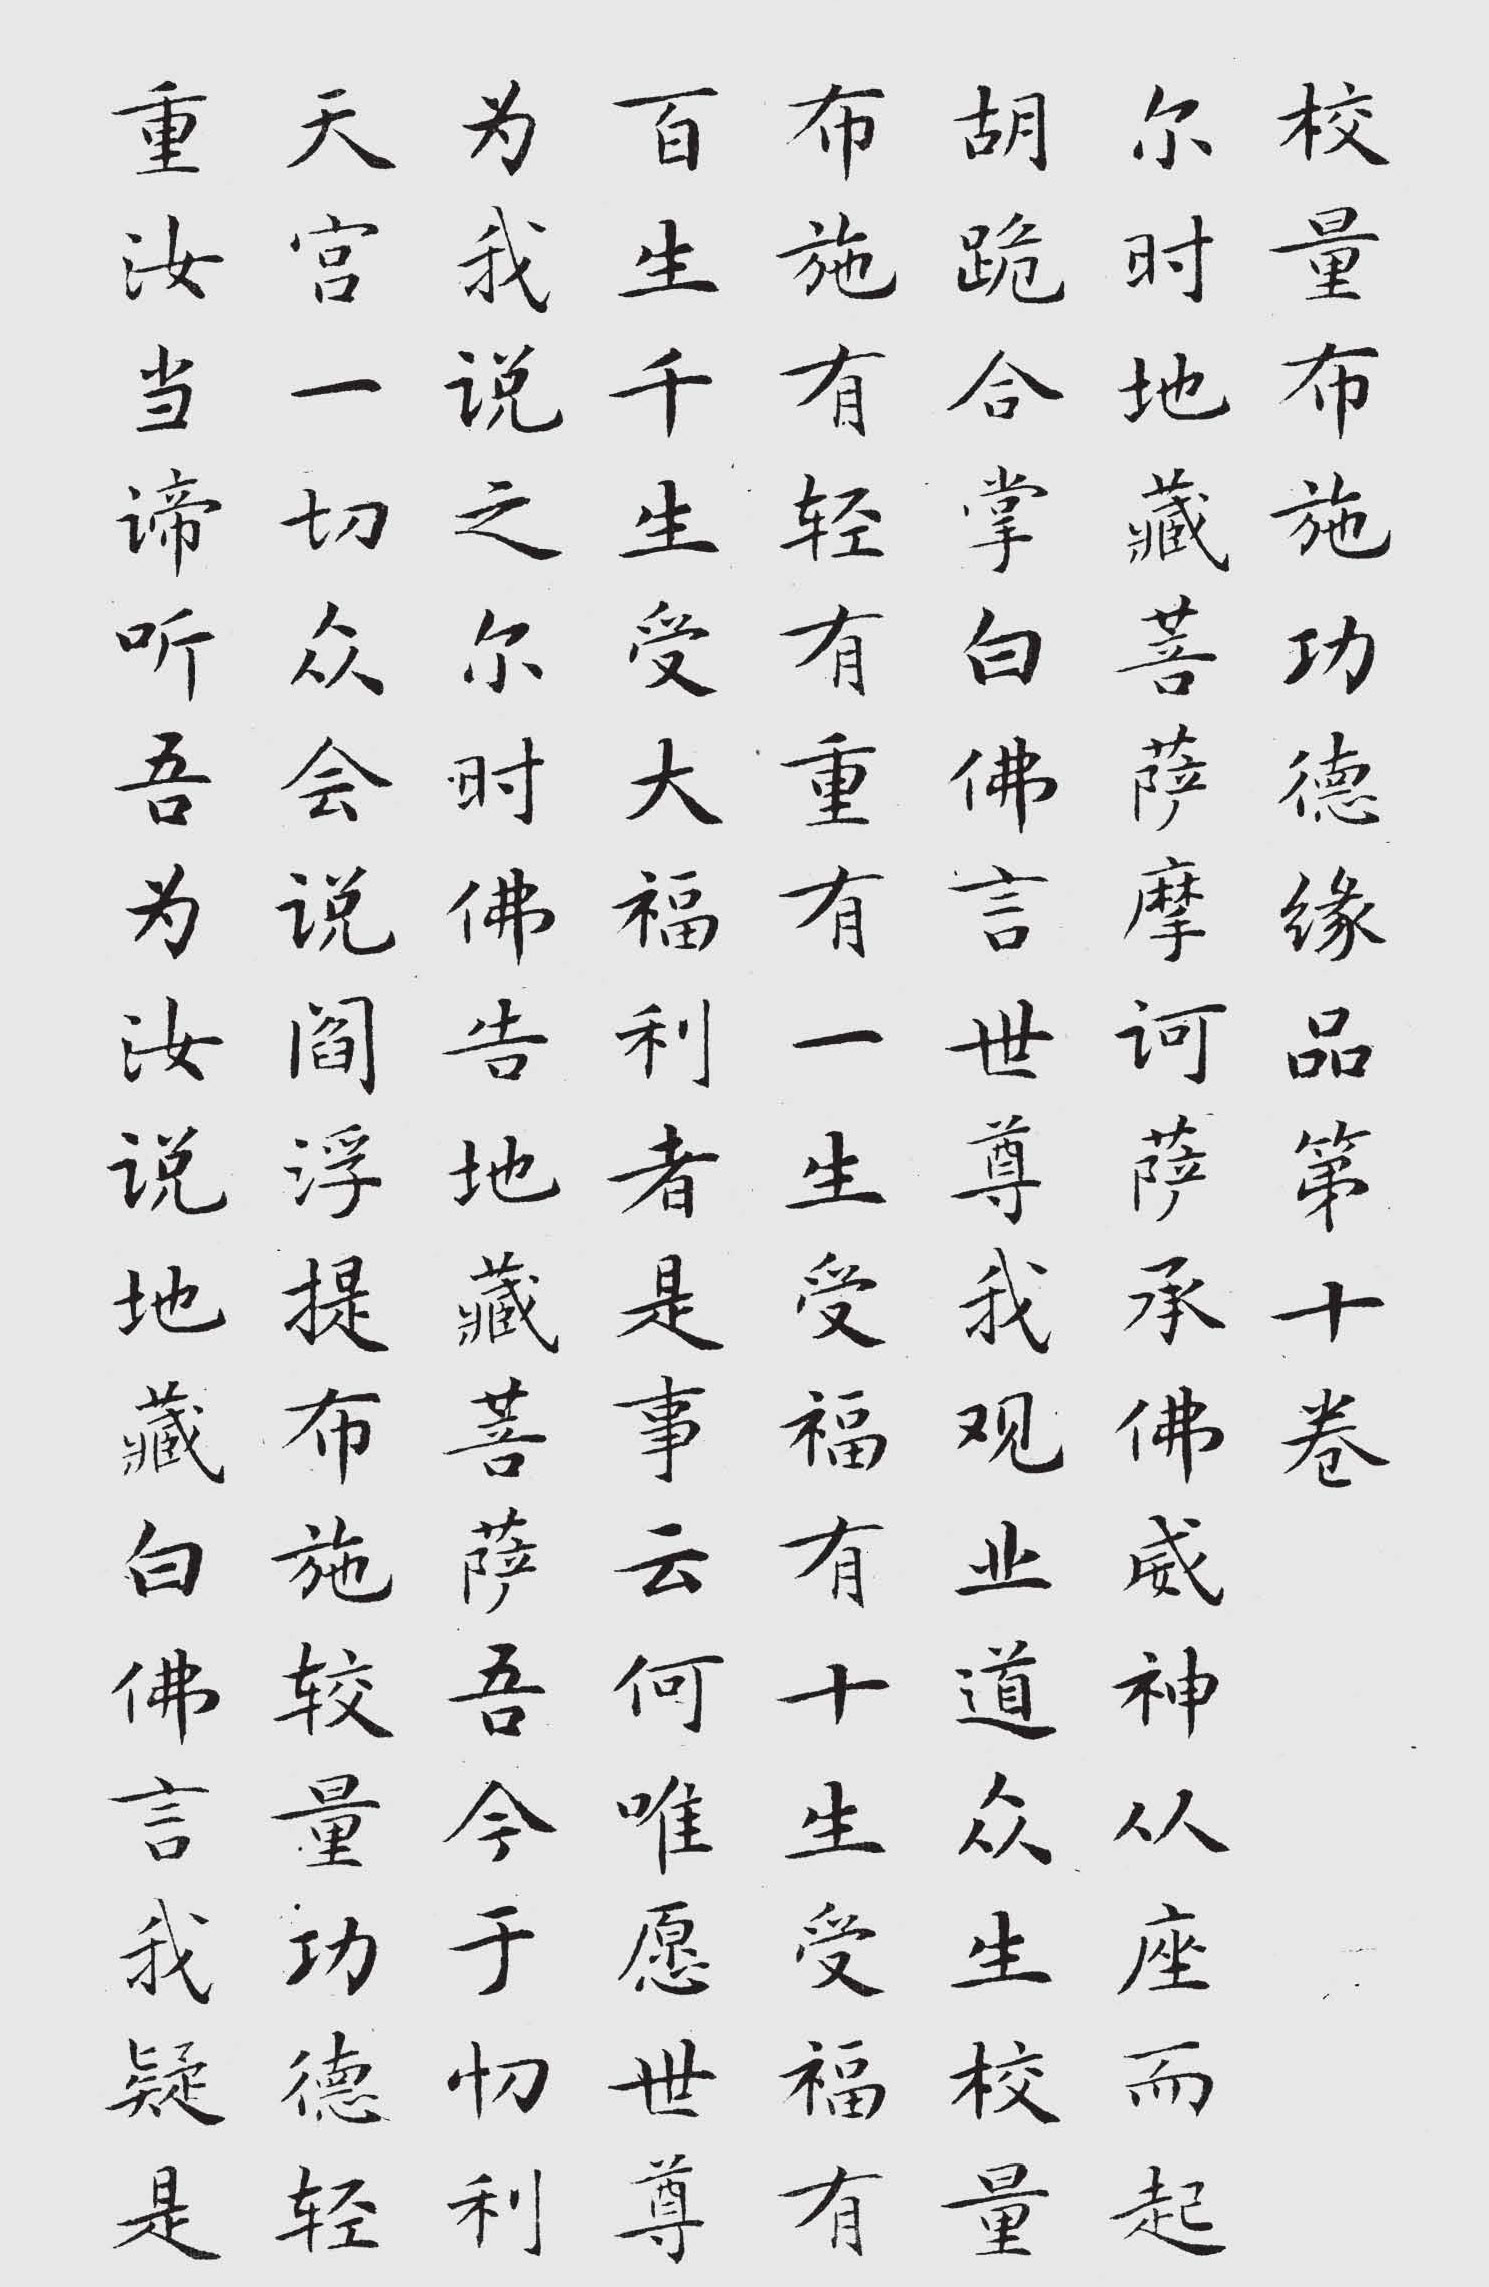 校量布施功德缘品第十卷
尔时地藏菩萨摩诃萨承佛威神从座而起
胡跪合掌白佛言世尊我观业道众生校量
布施有轻有重有一生受福有十生受福有
百生千生受大福利者是事云何唯愿世尊
为我说之尔时佛告地藏菩萨吾今于忉利
天宫一切众会说阎浮提布施较量功德轻
重汝当谛听吾为汝说地藏白佛言我疑是